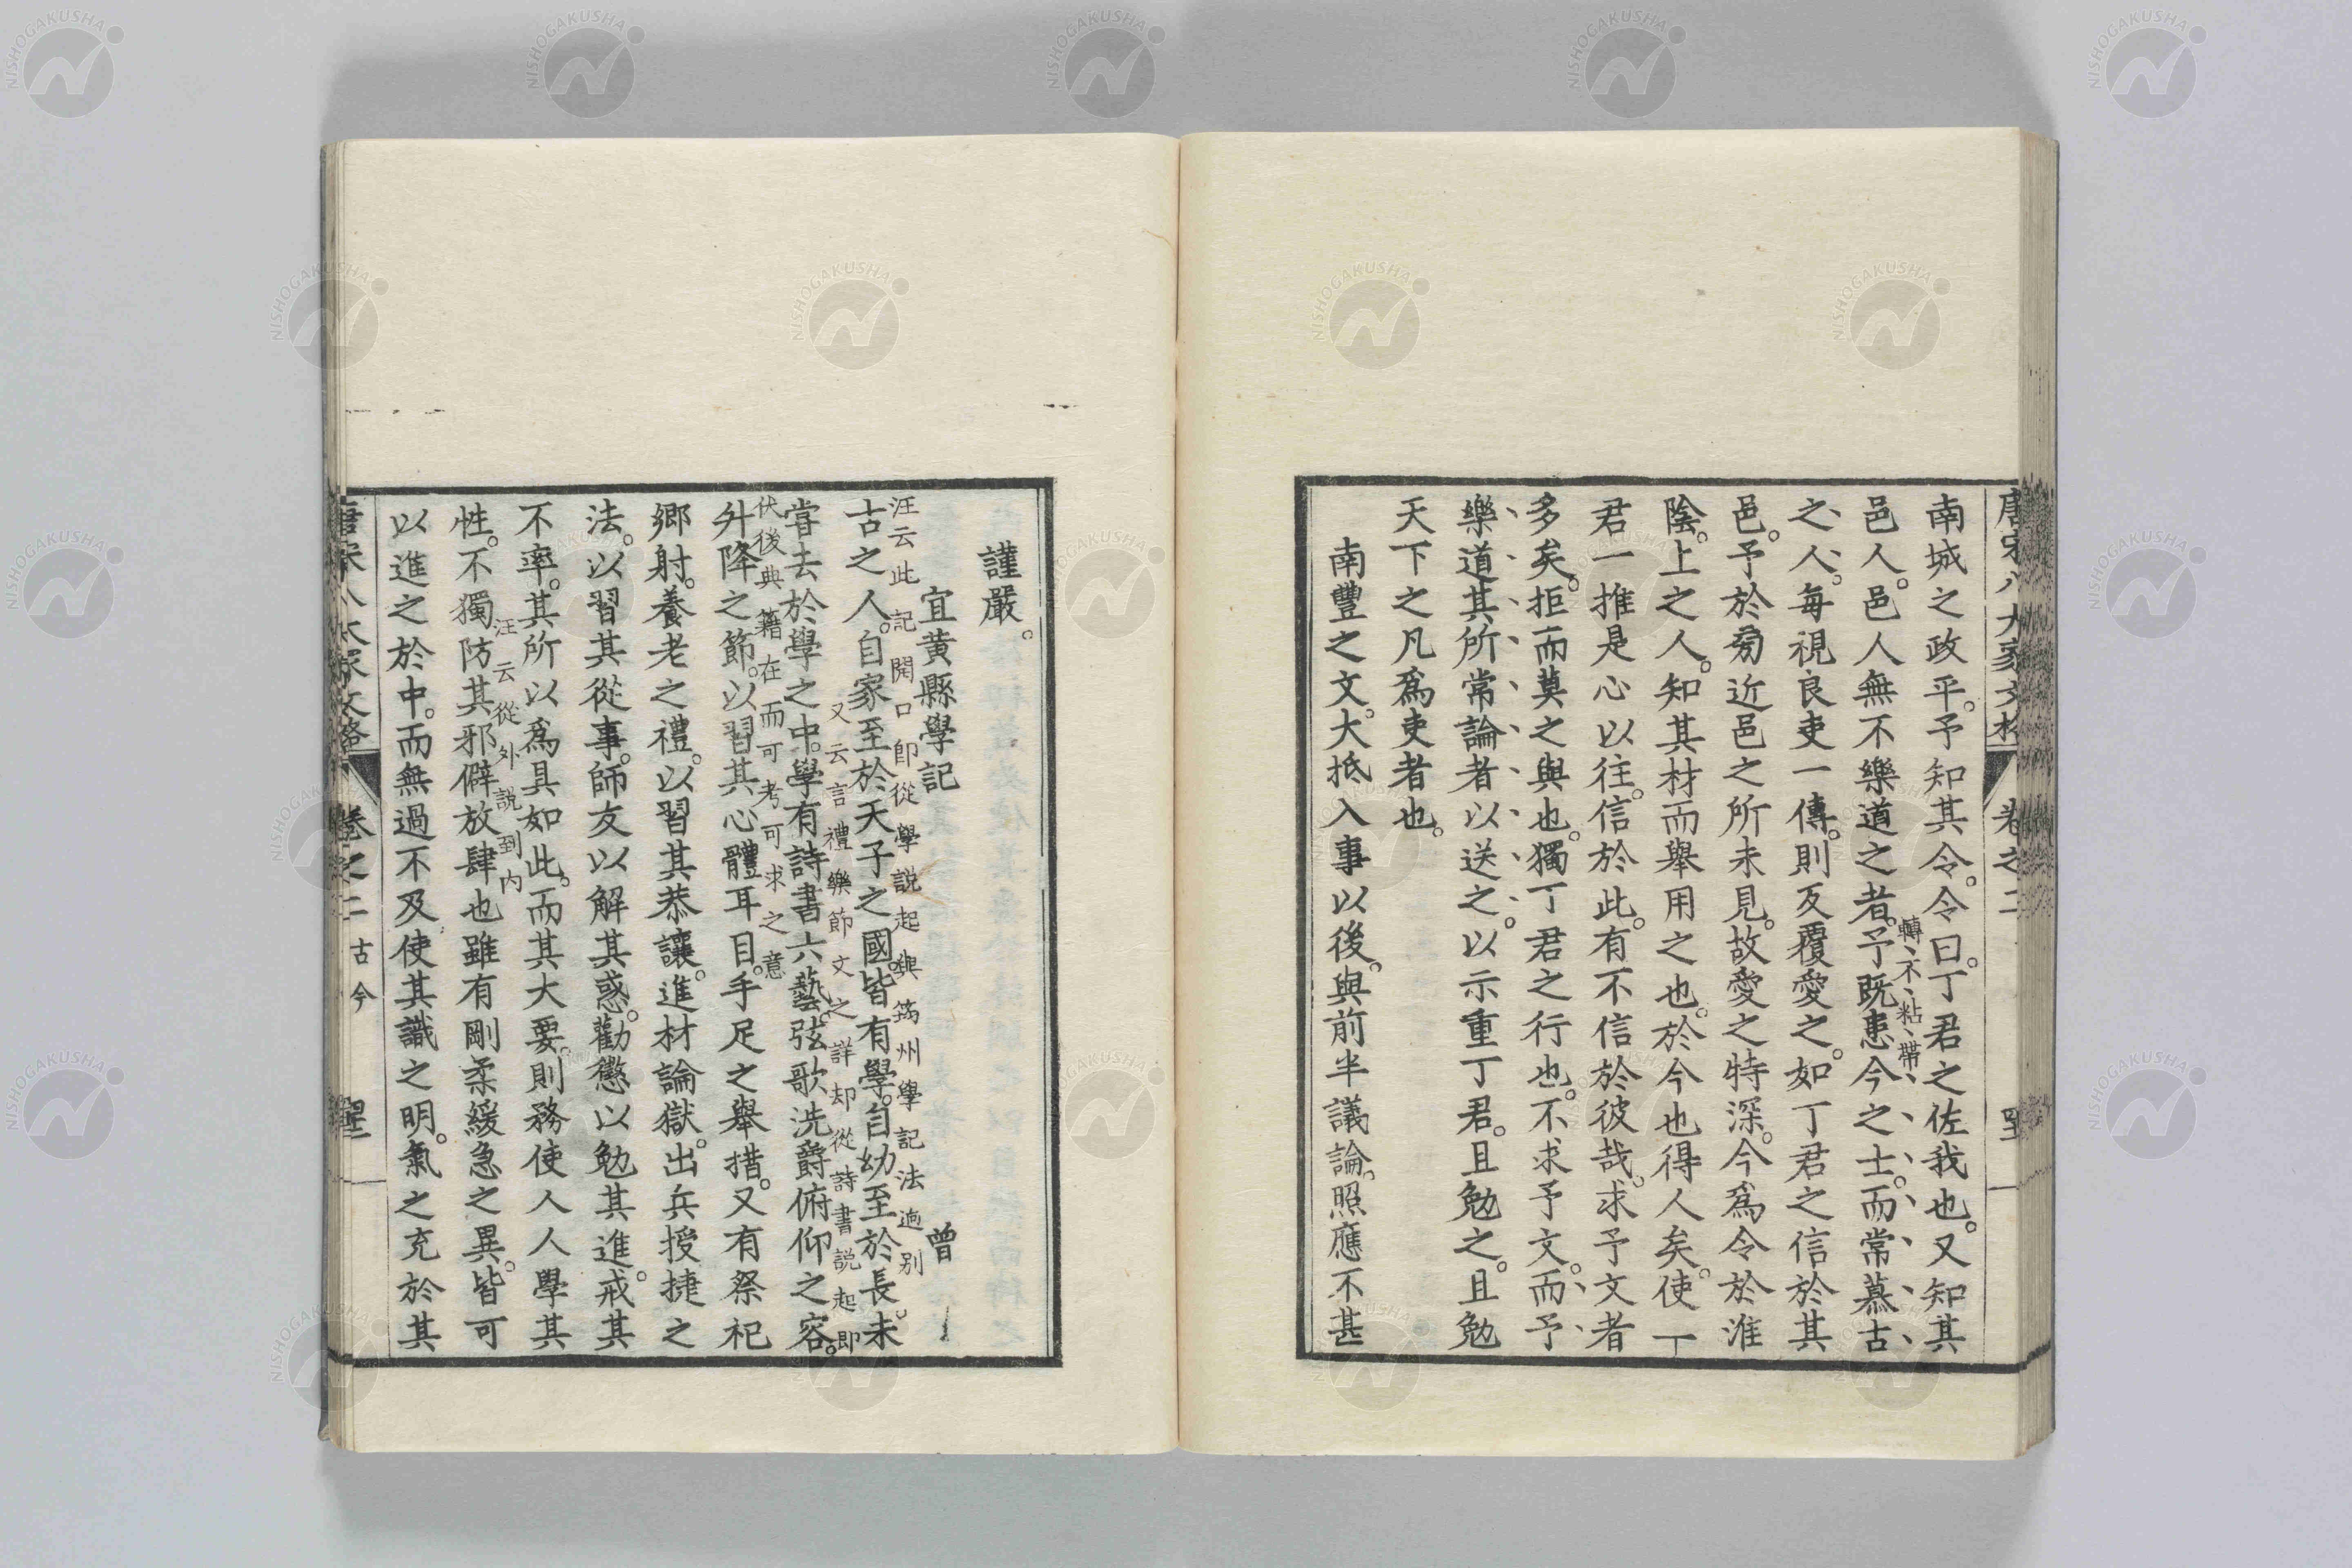 唐宋八大家文格 卷之二
南城之政平。予知其令。令曰。丁君之佐我也。又知其
邑人。邑人無不樂道之者。予既患今之士。而常慕古
轉不粘帶
之人。每視良吏一傳。則反覆愛之。如丁君之信於其
邑。予於旁近邑之所未見。故愛之特深。今爲令於淮
陰。上之人。知其材而舉用之也。於今也得人矣。使丁
君一推是心以往。信於此。有不信於彼哉。求予文者
多矣。拒而莫之與也。獨丁君之行也。不求予文。而予
樂道其所常論者以送之。以示重丁君。且勉之。且勉
天下之凡爲吏者也。
南豐之文。大抵入事以後。與前半議論。照應不甚
謹嚴。
宜黄縣學記 曾
汪云此記開口卽從學説起與筠州學記法逈别
古之人。自家至於天子之國。皆有學。自幼至於長。未
又云言禮樂節文之詳却從詩書説起卽
甞去於學之中。學有詩書六藝。弦歌洗爵俯仰之容。
伏後典籍在而可考可求之意
升降之節。以習其心體耳目。手足之舉措。又有祭祀
鄉射。養老之禮。以習其恭讓。進材論獄。出兵授捷之
法。以習其從事。師友以解其惑。勸懲以勉其進。戒其
不率。其所以爲具如此。而其大要。則務使人人學其
汪云從外説到内
性。不獨防其邪僻放肆也雖有剛柔緩急之異。皆可
以進之於中。而無過不及使其識之明。氣之充於其
唐宋八大家文格 卷之二 古今